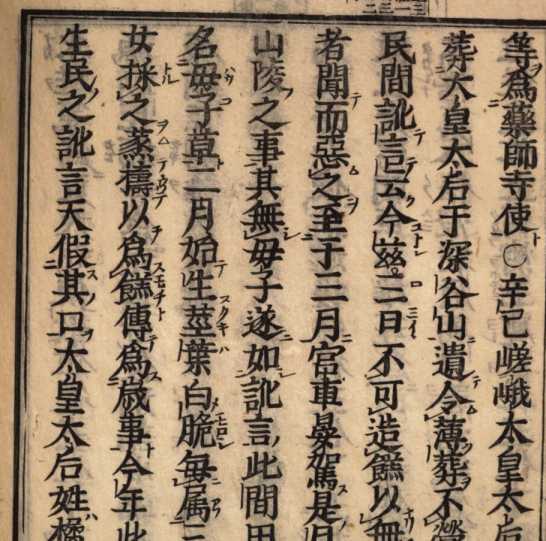 等爲藥師寺使○辛巳嵯峨太皇太后
葬大皇太后于深谷山遺令薄葬不
民間訛言云今茲三日不可造餻以無
者聞而惡之至于三月宮車晏駕是
山陵之事其無母子遂如訛言此間田
名母子草二月始生莖葉白脆毎属三
女採之蒸擣以爲餻傳爲歳事今年此
生民之訛言天假其口太皇太后姓橘